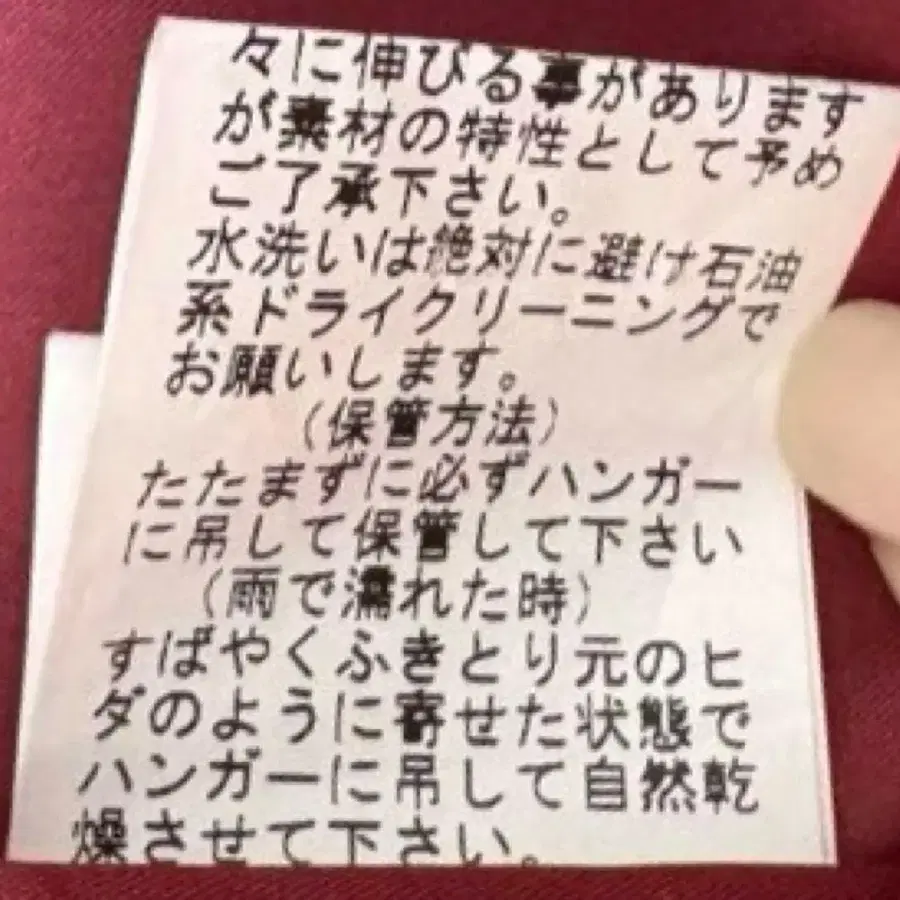 々に伸びる事があります
が素材の特性として予め
ご了承下さい。
水洗いは絶対に避け石油
系ドライクリーニングで
お願いします。
(保管方法)
たたまずに必ずハンガー
に吊して保管して下さい
(雨で濡れた時)
すばやくふきとり元のヒ
ダのように寄せた状態で
ハンガーに吊して自然乾
燥させて下さい。